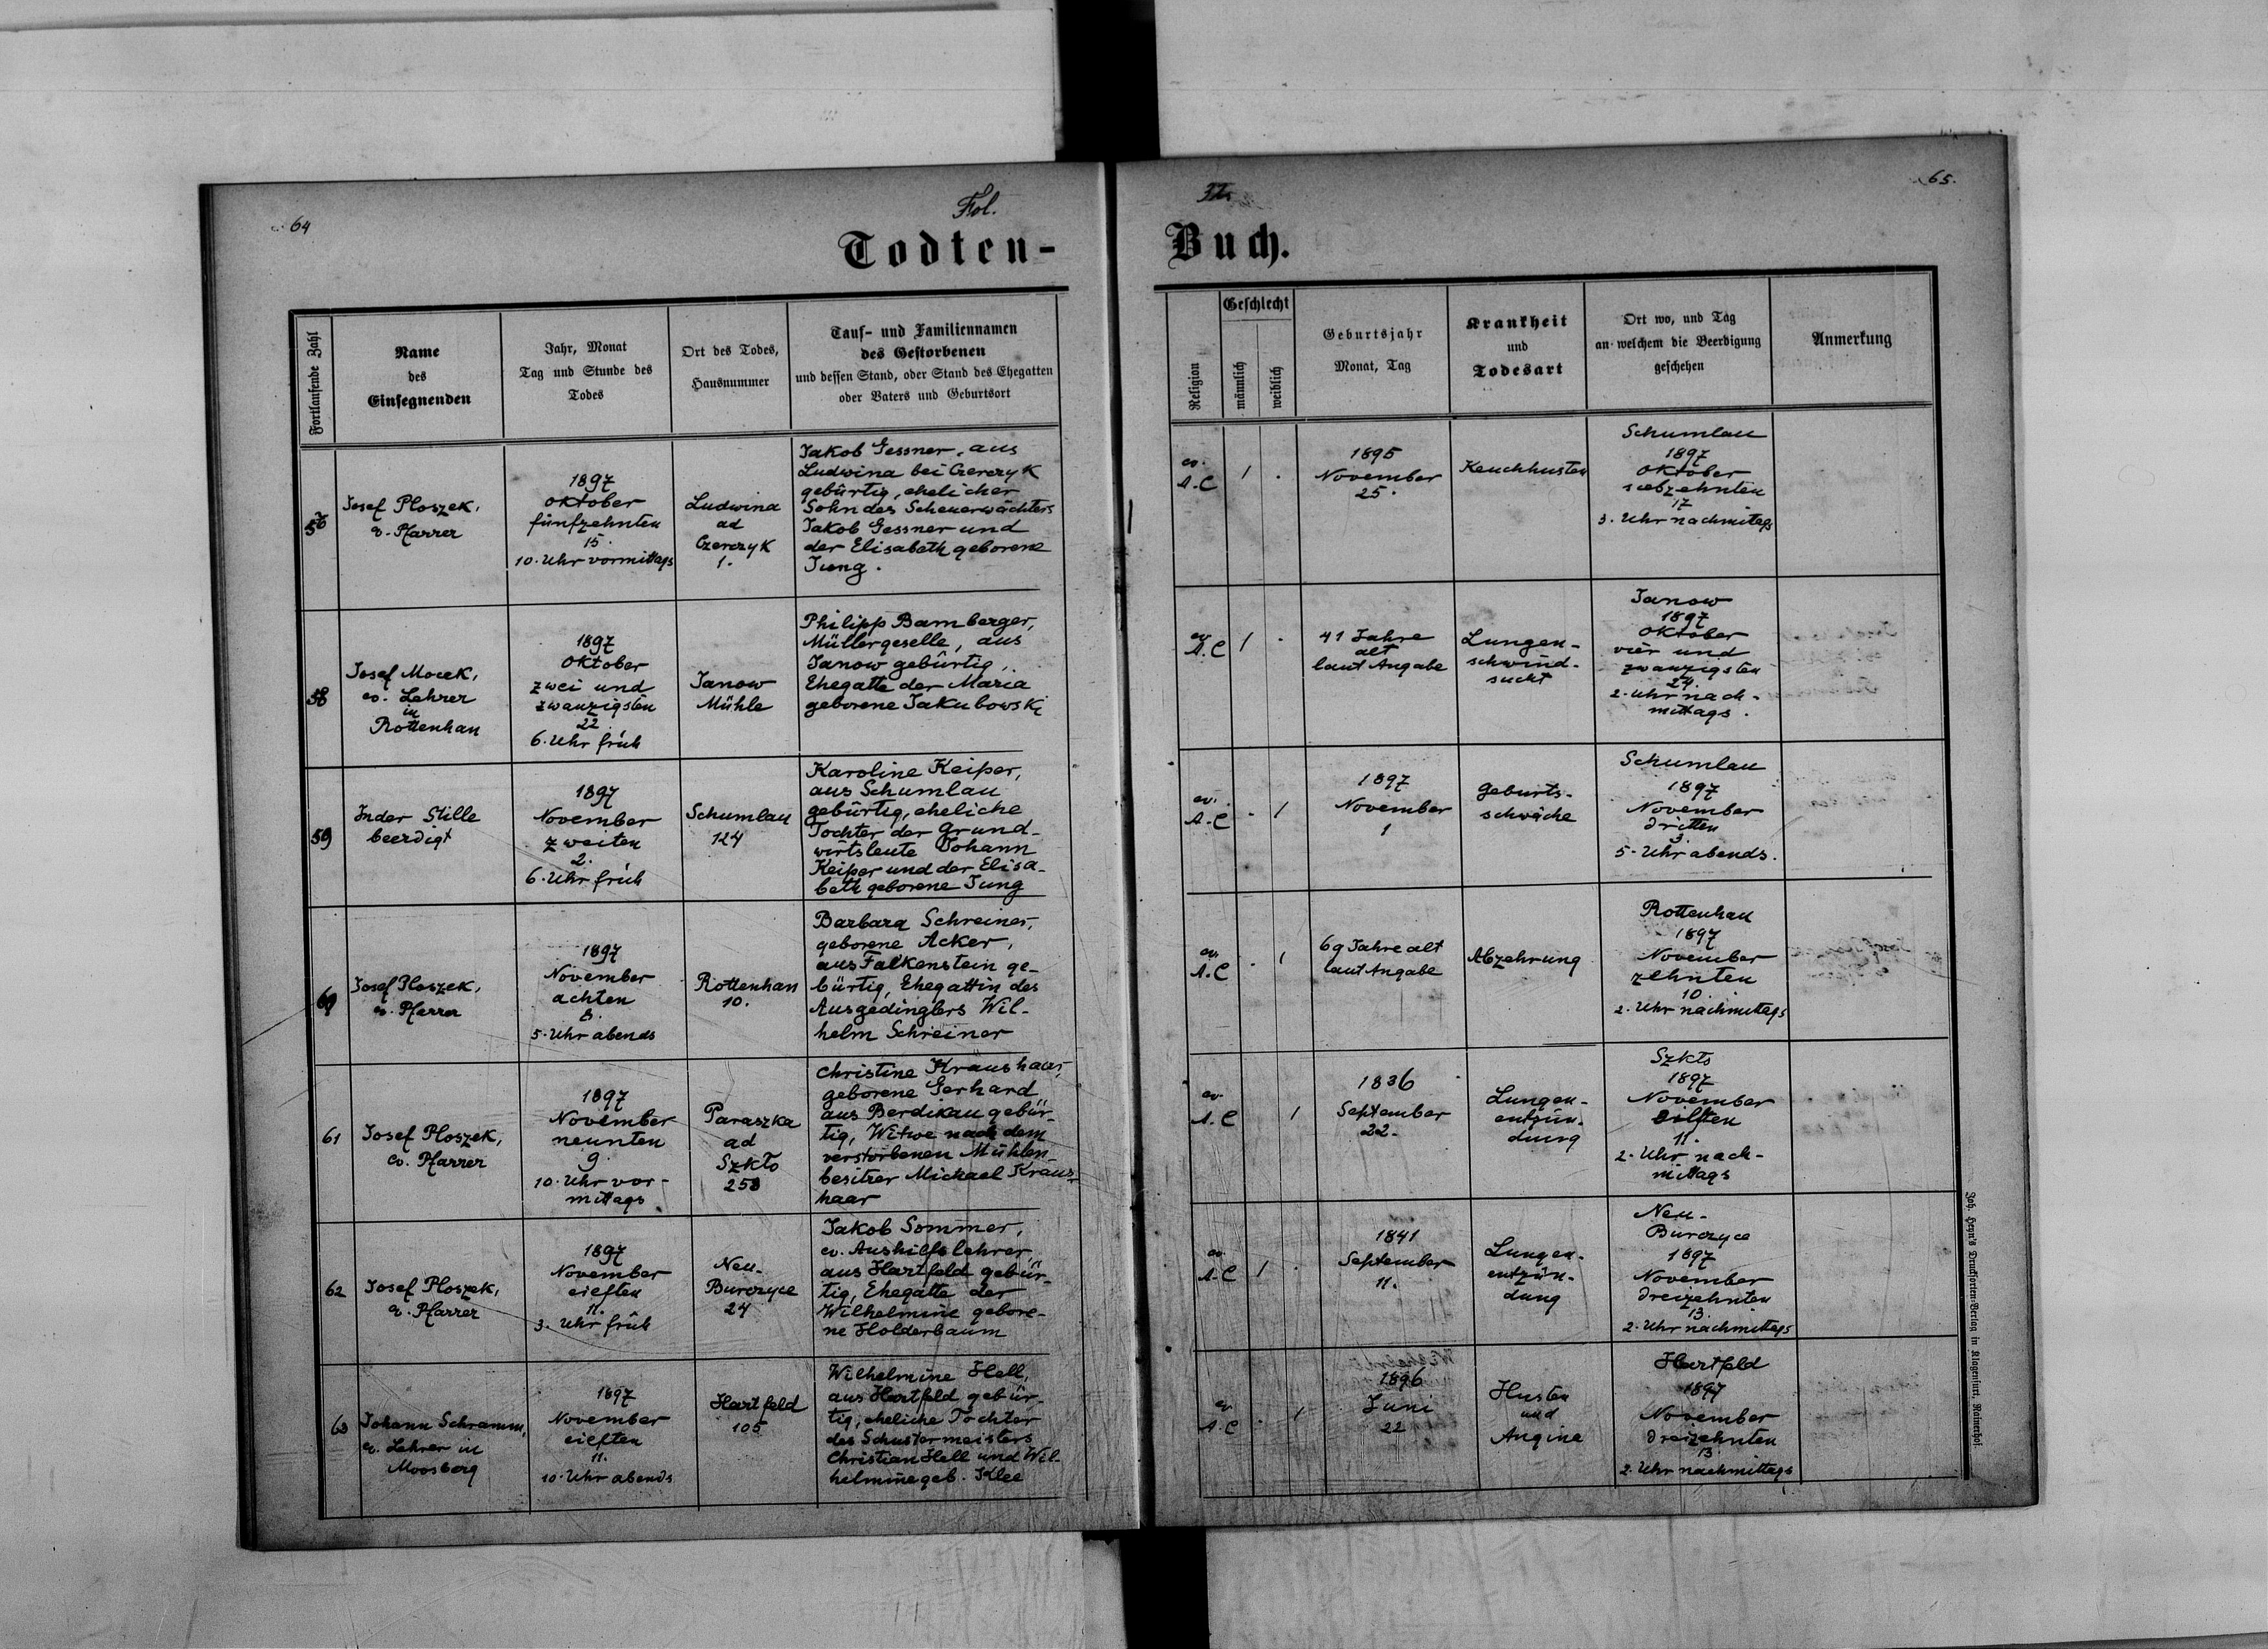 64
Fol.
Todten-
Fortlaufende Zahl
Name
des
Einsegnenden
Jahr, Monat
Tag und Stunde des
Todes
Ort des Todes,
Hausnummer
Tauf- und Familiennamen
des Gestorbenen
und dessen Stand, oder Stand des Ehegatten
oder Vaters und Geburtsort
Josef Ploszek,
ev. Pfarrer
1897
Oktober
fünfzehnten
15.
10. Uhr vormittags
Ludwina
ad
Czerczyk
1.
Jakob Gessner, aus
Ludwina bei Czerczyk
gebürtig, ehelicher
Sohn des Scheuerwächters
Jakob Gessner und
der Elisabeth geborene
Jung.
58
Josef Mocek,
ev. Lehrer
in
Rottenhan
1897
Oktober
zwei und
zwanzigsten
22.
6. Uhr früh
Janow
Mühle
Philipp Bamberger,
Müllergeselle, aus
Janow gebürtig,
Ehegatte der Maria
geborene Jakubowski
59
In der Stille
beerdigt
1897
November
zweiten
2.
6. Uhr früh
Schumlau
124
Karoline Keiper,
aus Schumlau
gebürtig, eheliche
Tochter der Grund-
wirtsleute Johann
Keiper und der Elisa-
beth geborene Jung
60
Josef Ploszek,
ev. Pfarrer
1897
November
achten
8.
5. Uhr abends
Rottenhan
10.
Barbara Schreiner,
geborene Acker,
aus Falkenstein ge-
bürtig, Ehegattin des
Ausgedinglers Wil-
helm Schreiner
61
Josef Ploszek,
ev. Pfarrer
1897
November
neunten
9.
10. Uhr vor-
mittags
Paraszka
ad
Szkto
253
Christine Kraushaar,
geborene Gerhard
aus Berdikau gebür-
tig, Witwe nach dem
verstorbenen Mühlen-
besitzer Michael Kraus-
haar
62
Josef Ploszek,
ev. Pfarrer
1897
November
eilften
11.
3. Uhr früh
Neu-
Burczyce
24
Jakob Sommer,
ev. Aushilfslehrer,
aus Hartfeld gebür-
tig, Ehegatte der
Wilhelmine gebore-
ne Holderbaum
63
Johann Schramm,
ev. Lehrer in
Moosberg
1897
November
eilften
11.
10. Uhr abends
Hartfeld
105
Wilhelmine Hell,
aus Hartfeld gebür-
tig, eheliche Tochter
des Schustermeisters
Christian Hell und Wil-
helmine geb. Klee
65.
Buch.
Religion
Geschlecht
männlich
weiblich
Geburtsjahr
Monat, Tag
Krankheit
und
Todesart
Ort wo, und Tag
an welchem die Beerdigung
geschehen
Anmerkung
ev.
A.C
1 .
1895
November
25.
Keuchhusten
Schumlau
1897
Oktober
siebzehnten
17
3. Uhr nachmittags
ev.
A.C
1 .
41 Jahre
alt
laut Angabe
Lungen-
schwind-
sucht
Janow
1897
Oktober
vier und
zwanzigsten
24.
2. Uhr nach-
mittags.
ev.
A.C
. 1
1897
November
1
Geburts-
schwäche
Schumlau
1897
November
dritten
3.
5. Uhr abends.
ev.
A.C
. 1
69 Jahre alt
laut Angabe
Abzehrung
Rottenhan
1897
November
zehnten
10.
2. Uhr nachmittags
ev.
A.C
1
1836
September
22.
Lungen-
entzün-
dung
Szkto
1897
November
eilften
11.
2. Uhr nach-
mittags
ev.
A.C
1 .
1841
September
11.
Lungen-
entzün-
dung
Neu-
Burczyce
1897
November
dreizehnten
13.
2. Uhr nachmittags
ev.
A.C
. 1
1896
Juni
22
Husten
und
Angina
Hartfeld
1897
November
dreizehnten
13.
2. Uhr nachmittags
Joh. Heyn's Drucksorten-Verlag in Klagenfurt, Rainerhof.